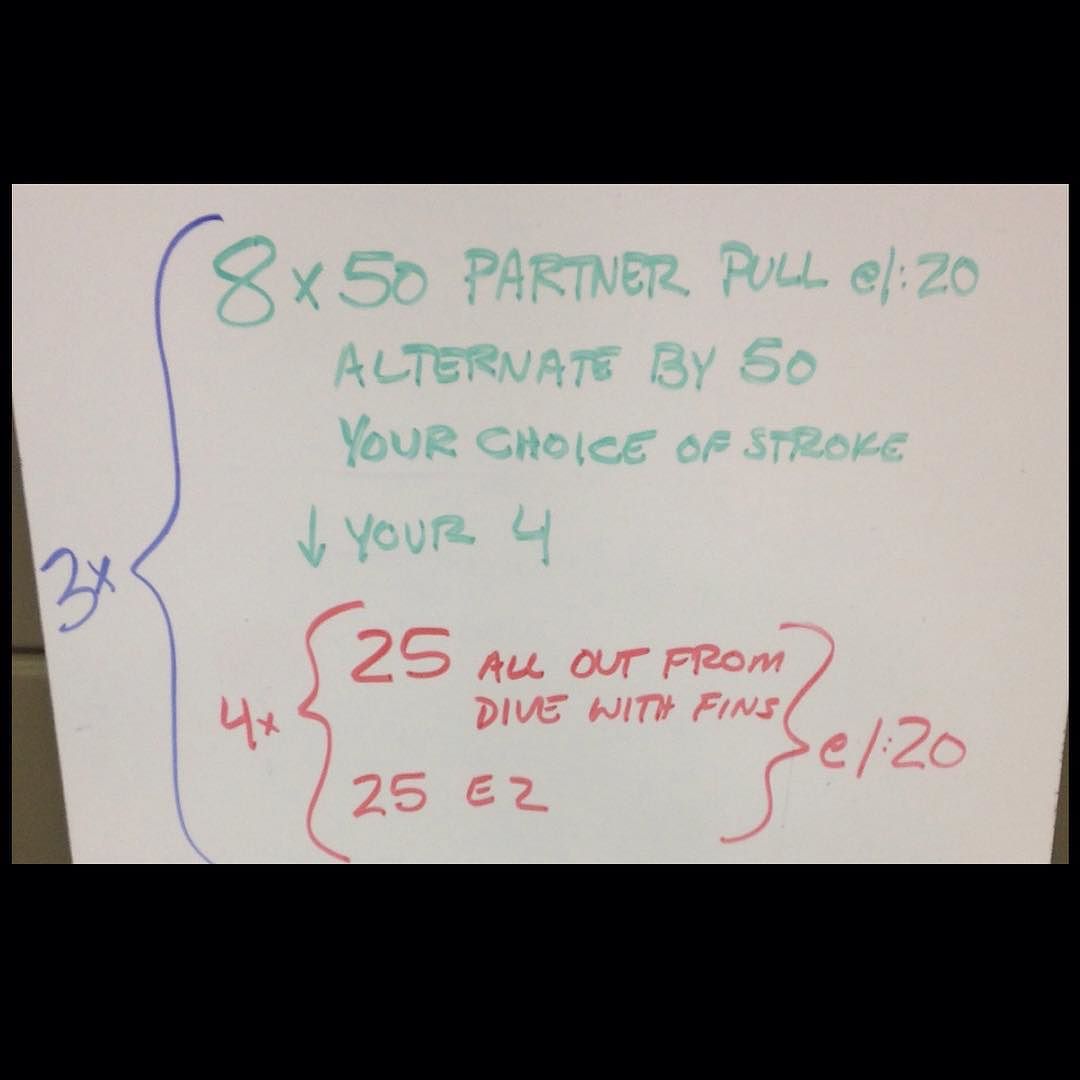 3x
8 x 50 PARTNER PULL e/:20
ALTERNATE BY 50
YOUR CHOICE OF STROKE
↓ YOUR 4
4x
25 ALL OUT FROM
DIVE WITH FINS
e/:20
25 EZ